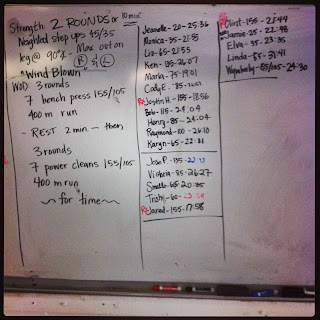 Strength: 2 ROUNDS or 10 min
Weighted step ups 45/35
leg @ 90° - Max out on
R & L
"Wind Blown"
WOD: 3 rounds
7 bench press 155/105
400 m run
- REST 2 min - then
3 rounds
7 power cleans 155/105
400 m run
~ for time ~
Jeanette - 20 - 25:36
Monica - 35 - 21:55
Lia - 65 - 21:55
Ken - 135 - 26:07
Maria - 75 - 19:01
Cody E. - 85 -
Justin H. - 155 - 18:56
Bob - 115 - 24:04
Henry - 85 - 24:04
Raymond - 100 - 26:10
Karyn - 65 - 22:31
Jose P. - 135 -
Victoria - 85 - 26:27
20:35
Trish - 60 -
Rx Jarad - 155 - 17:58
Rx Clint - 155 - 21:44
Jamie - 25 - 22:48
Elva - 35 - 23:35
Linda - 55 - 31:41
24:30